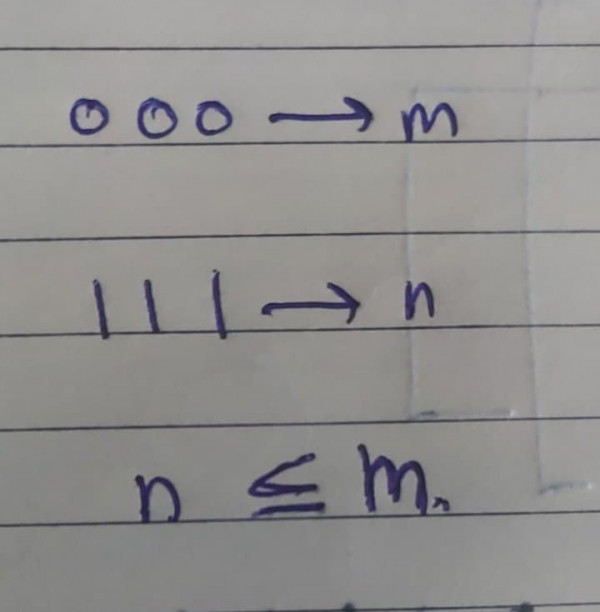 0 0 0 → m
1 1 1 → n
n ≤ m.